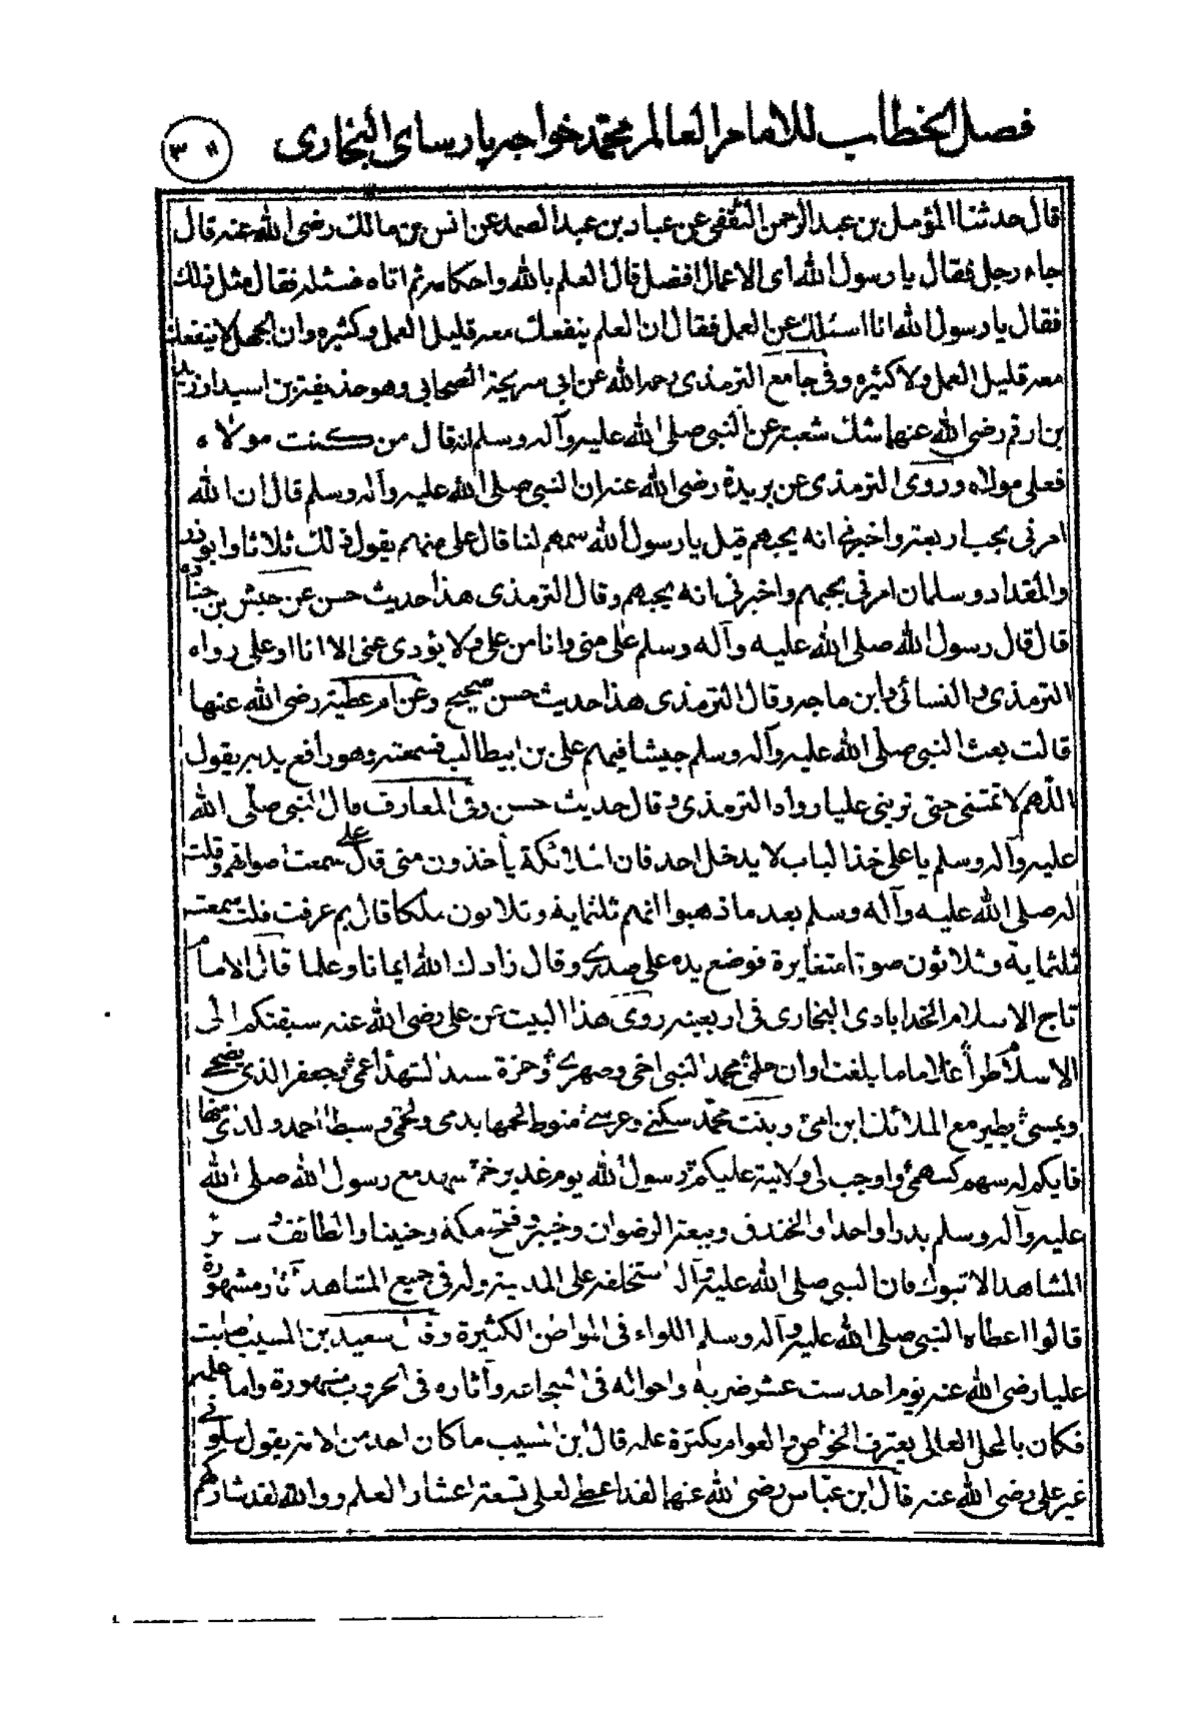 فصل الخطاب للامام العالم محمد خواجه پارسای البخاری
قال حدثنا المؤمل بن عبد الرحمن الثقفی عن عباد بن عبد الصمد عن انس بن مالك رضی الله عنه قال
جاء رجل فقال يا رسول الله ای الاعمال افضل قال العلم بالله واحكامه ثم اتاه فسئله فقال مثل ذلك
فقال يا رسول الله انا اسئلك عن العمل فقال ان العلم ينفعك معه قليل العمل وكثيره وان الجهل لا ينفعك
معه قليل العمل ولا كثيره وفی جامع الترمذی رحمه الله عن ابی سريحة الصحابی وهو حذيفة بن اسيد او زيد
بن ارقم رضی الله عنهما شك شعبة عن النبی صلی الله عليه وآله وسلم انه قال من كنت مولاه
فعلی مولاه وروی الترمذی عن بريدة رضی الله عنه ان النبی صلی الله عليه وآله وسلم قال ان الله
امرنی بحب اربعة واخبرنی انه يحبهم قيل يا رسول الله سمهم لنا قال علی منهم يقول ذلك ثلاثا وابو ذر
والمقداد وسلمان امرنی بحبهم واخبرنی انه يحبهم وقال الترمذی هذا حديث حسن عن حبش بن جنادة
قال قال رسول الله صلی الله عليه وآله وسلم علی منی وانا من علی ولا يؤدی عنی الا انا او علی رواه
الترمذی والنسائی وابن ماجه وقال الترمذی هذا حديث حسن صحيح وعن ام عطية رضی الله عنها
قالت بعث النبی صلی الله عليه وآله وسلم جيشا فيهم علی بن ابيطالب فسمعته وهو رافع يديه يقول
اللهم لا تمتنی حتی ترينی عليا رواه الترمذی وقال حديث حسن وفی المعارف قال النبی صلی الله
عليه وآله وسلم يا علی خذ الباب لا يدخل احد فان الملائكة يأخذون منی قال علی سمعت اصواتهم وقلت
له صلی الله عليه وآله وسلم بعد ما ذهبوا انهم ثلثماية وثلاثون ملكا قال بم عرفت قلت سمعت
ثلثماية وثلاثون صوتا متغايرة فوضع يده علی صدری وقال زادك الله ايمانا وعلما قال الامام
تاج الاسلام الخدابادی البخاری فی اربعينه روی هذا البيت عن علی رضی الله عنه سبقتكم الی
الاسلام طرا غلاما ما بلغت اوان حلمی محمد النبی اخی وصهری وحمزة سيد الشهداء عمی وجعفر الذی يضحی
ويمسی يطير مع الملائك ابن امی وبنت محمد سكنی وعرسی منوط لحمها بدمی ولحمی وسبطا احمد ولدی منها
فايكم له سهم كسهمی واوجب لی ولايته عليكم رسول الله يوم غدير خم شهد مع رسول الله صلی الله
عليه وآله وسلم بدرا واحدا والخندق وبيعة الرضوان وخيبر وفتح مكة وحنينا والطائف
المشاهد الا تبوك فان النبی صلی الله عليه وآله استخلفه علی المدينة وله فی جميع المشاهد آثار مشهورة
قالوا اعطاه النبی صلی الله عليه وآله وسلم اللواء فی المواضن الكثيرة وقال سعيد بن المسيب صابت
عليا رضی الله عنه يوم احد ست عشر ضربة واحواله فی الشجاعة وآثاره فی الحروب مشهورة واما علمه
فكان بالمحل العالی يعترف الخواص والعوام بكثرة علمه قال ابن المسيب ما كان احد من الامة يقول سلونی
غير علی رضی الله عنه قال ابن عباس رضی الله عنهما لقد اعطی لعلی تسعة اعشار العلم ووالله لقد شاركهم